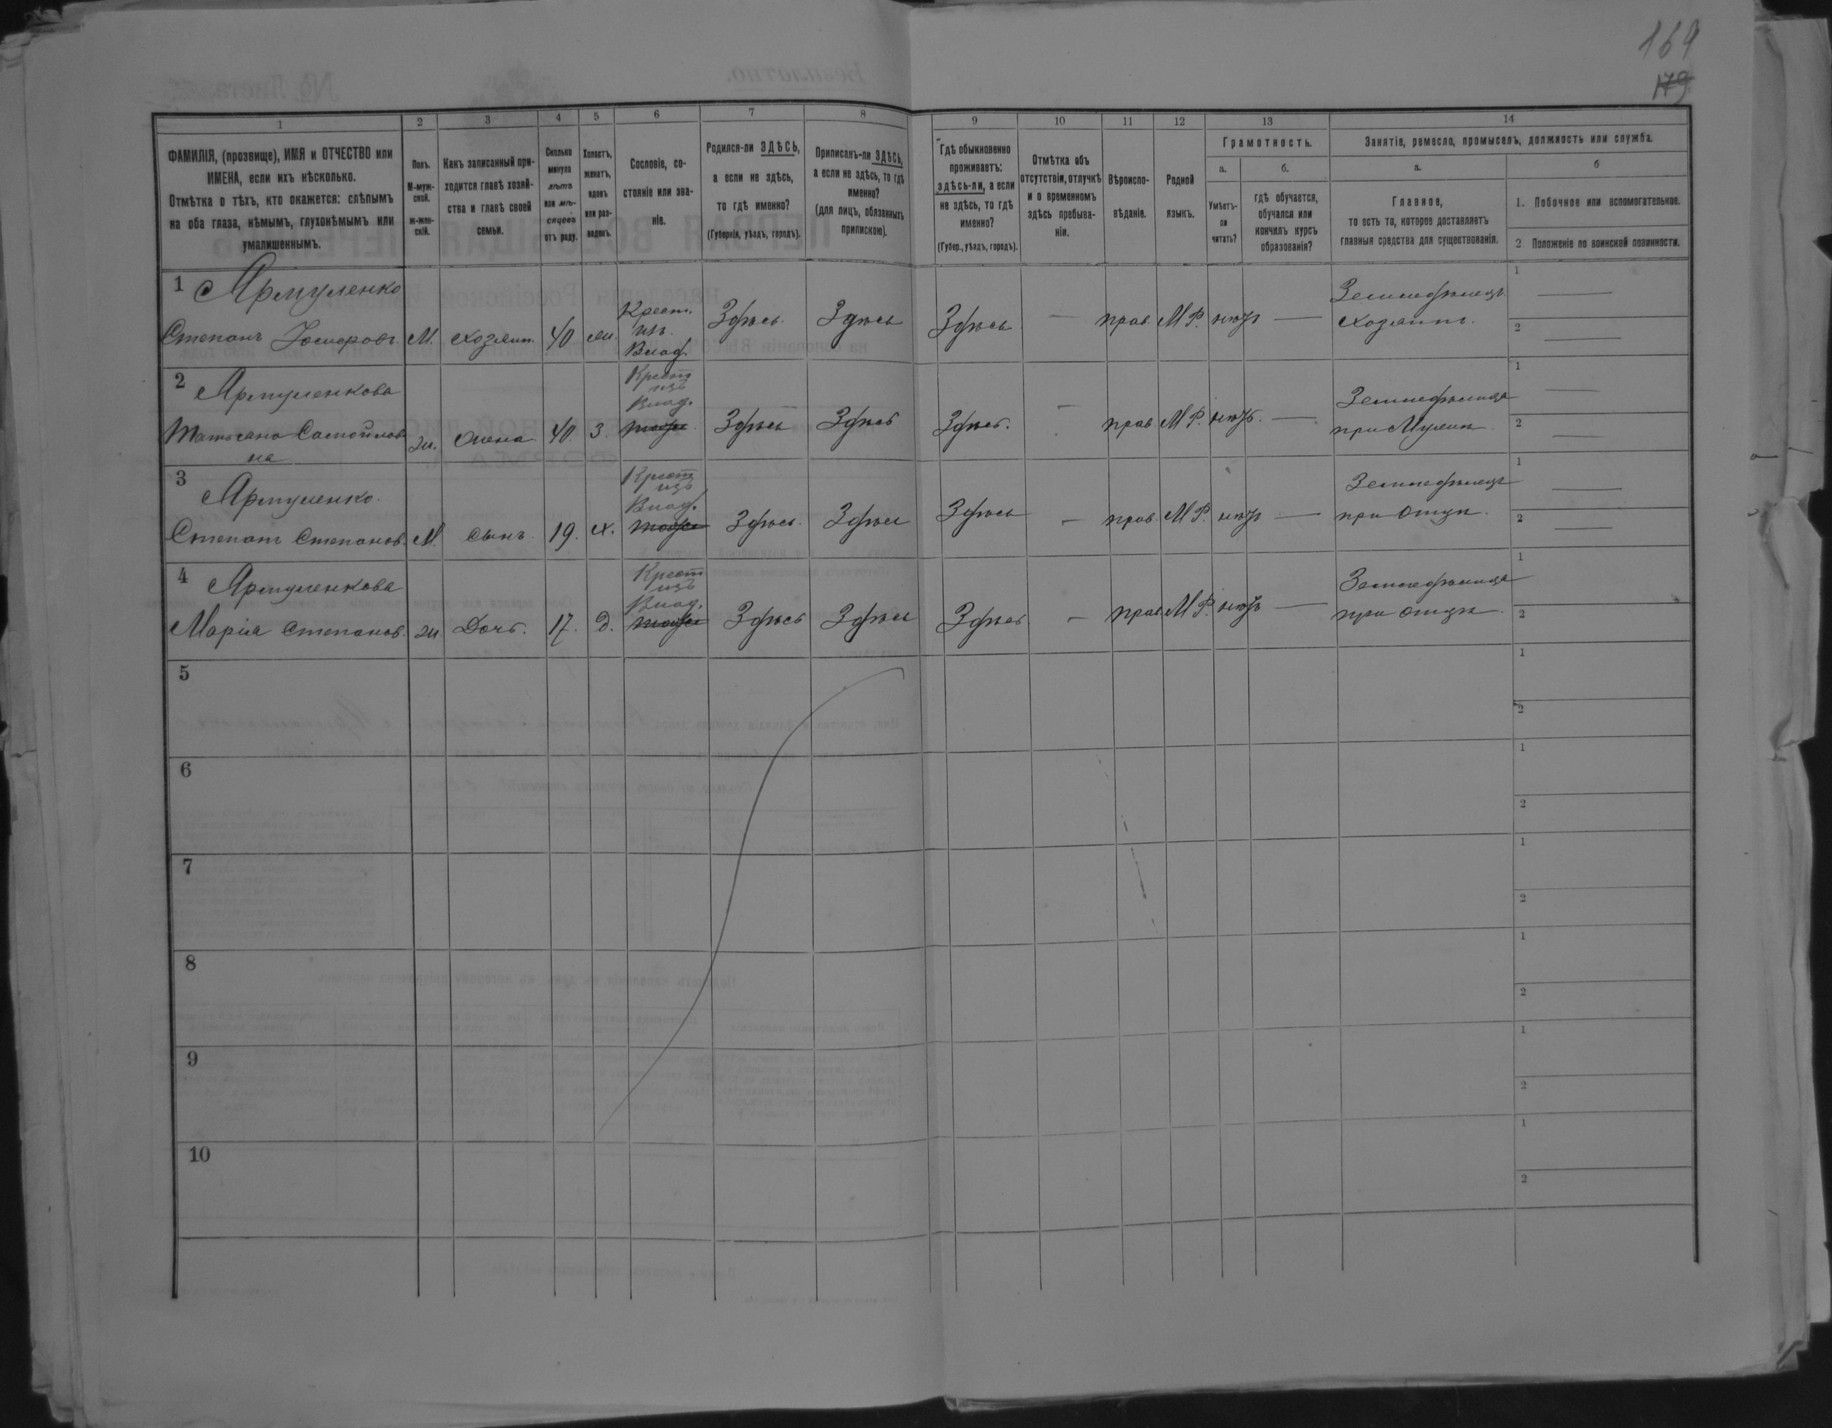 169
179
1 2 3 4 5 6 7 8 9 10 11 12 13 14
ФАМИЛІЯ, (прозвище), ИМЯ и ОТЧЕСТВО или
ИМЕНА, если ихъ нѣсколько.
Отмѣтка о тѣхъ, кто окажется: слѣпымъ
на оба глаза, нѣмымъ, глухонѣмымъ или
умалишеннымъ.
Полъ.
М-муж-
ской.
ж-жен-
скій.
Какъ записанный при-
ходится главѣ хозяй-
ства и главѣ своей
семьи.
Сколько
минуло
лѣтъ
или мѣ-
сяцевъ
отъ роду.
Холостъ,
женатъ,
вдовъ
или раз-
веденъ.
Сословіе, со-
стояніе или зва-
ніе.
Родился-ли ЗДѢСЬ,
а если не здѣсь,
то гдѣ именно?
(Губернія, уѣздъ, городъ).
Приписанъ-ли ЗДѢСЬ,
а если не здѣсь, то гдѣ
именно?
(для лицъ, обязанныхъ
припискою).
Гдѣ обыкновенно
проживаетъ:
здѣсь-ли, а если
не здѣсь, то гдѣ
именно?
(Губер., уѣздъ, городъ).
Отмѣтка объ
отсутствіи, отлучкѣ
и о временномъ
здѣсь пребыва-
ніи.
Вѣроиспо-
вѣданіе.
Родной
языкъ.
Грамотность.
а.
Умѣетъ-
ли
читать?
б.
гдѣ обучается,
обучался или
кончилъ курсъ
образованія?
Занятіе, ремесло, промыселъ, должность или служба.
а.
Главное,
то есть то, которое доставляетъ
главныя средства для существованія.
б
1. Побочное или вспомогательное.
2 Положеніе по воинской повинности.
1 Ярмуленко
Степанъ М. хозяин. 40. Крест.
из.
Влад. Здѣсь. Здѣсь Здѣсь — прав. М.Р. нѣтъ — Земледѣлецъ
хозяинъ. 1 —
2 —
2 Ярмуленкова
Татьяна Самойлов
на ж. жена 40. З. Крест
изъ
Влад.
тоже Здѣсь Здѣсь Здѣсь. — прав М.Р. нѣтъ. — Земледѣлица
при Мужѣ 1 —
2 —
3 Ярмуленко.
Степанъ Степанов. М. сынъ. 19. х. Крест
изъ
Влад.
тоже Здѣсь. Здѣсь Здѣсь — прав. М.Р. нѣтъ — Земледѣлецъ
при отцѣ. 1 —
2 —
4 Ярмуленкова
Марія Степанов. ж Дочь. 17. Д. Крест
изъ
Влад.
тоже Здѣсь Здѣсь Здѣсь — прав М.Р. нѣтъ — Земледѣлица
при отцѣ 1
2
5 1
2
6 1
2
7 1
2
8 1
2
9 1
2
10 1
2